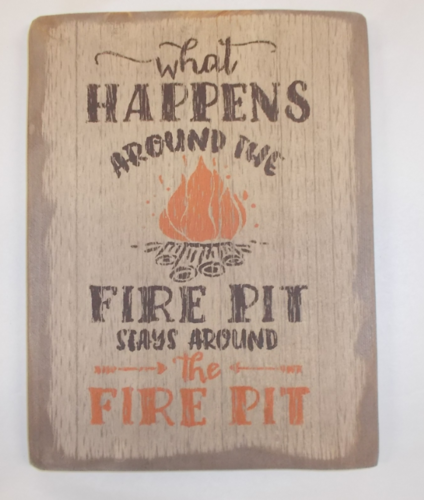 what
HAPPENS
AROUND THE
FIRE PIT
STAYS AROUND
the
FIRE PIT